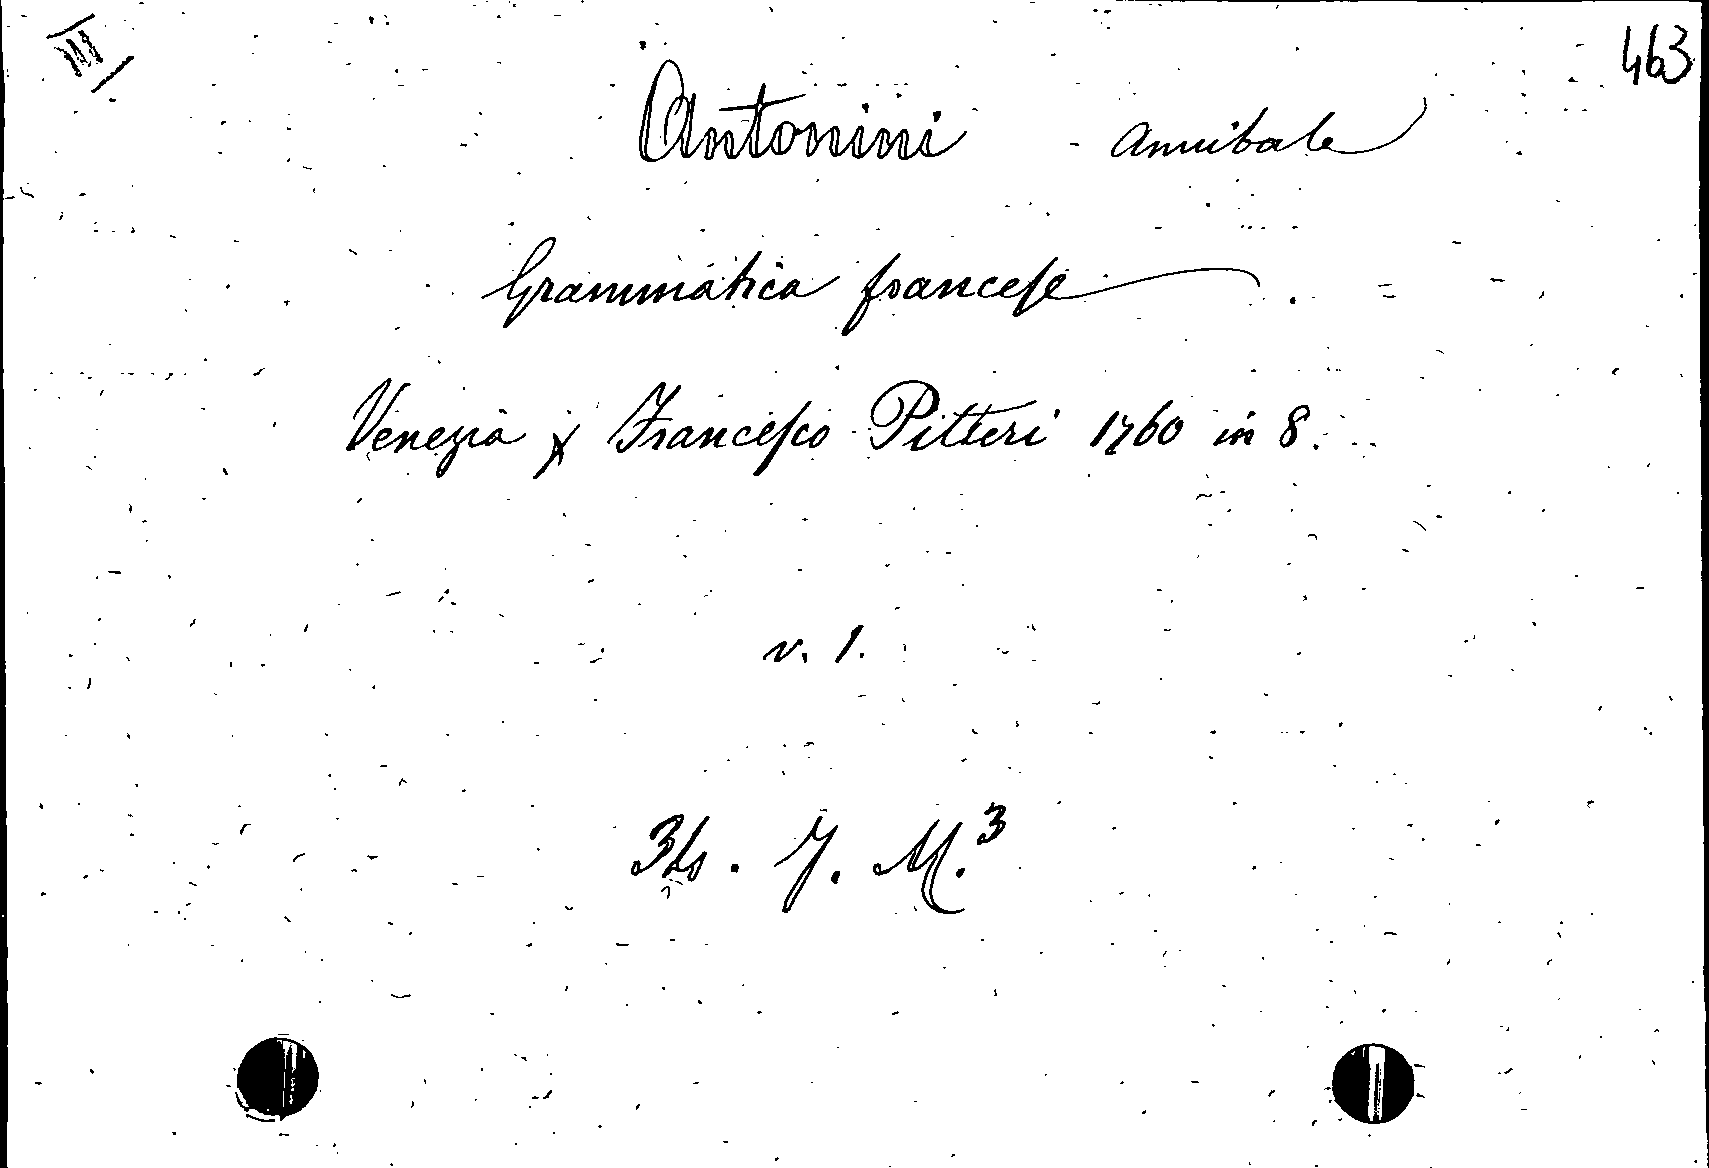 III
463
Antonini - Annibale
Grammatica francese
Venezia x Francesco Pitteri 1760 in 8.
v. 1.
M.³